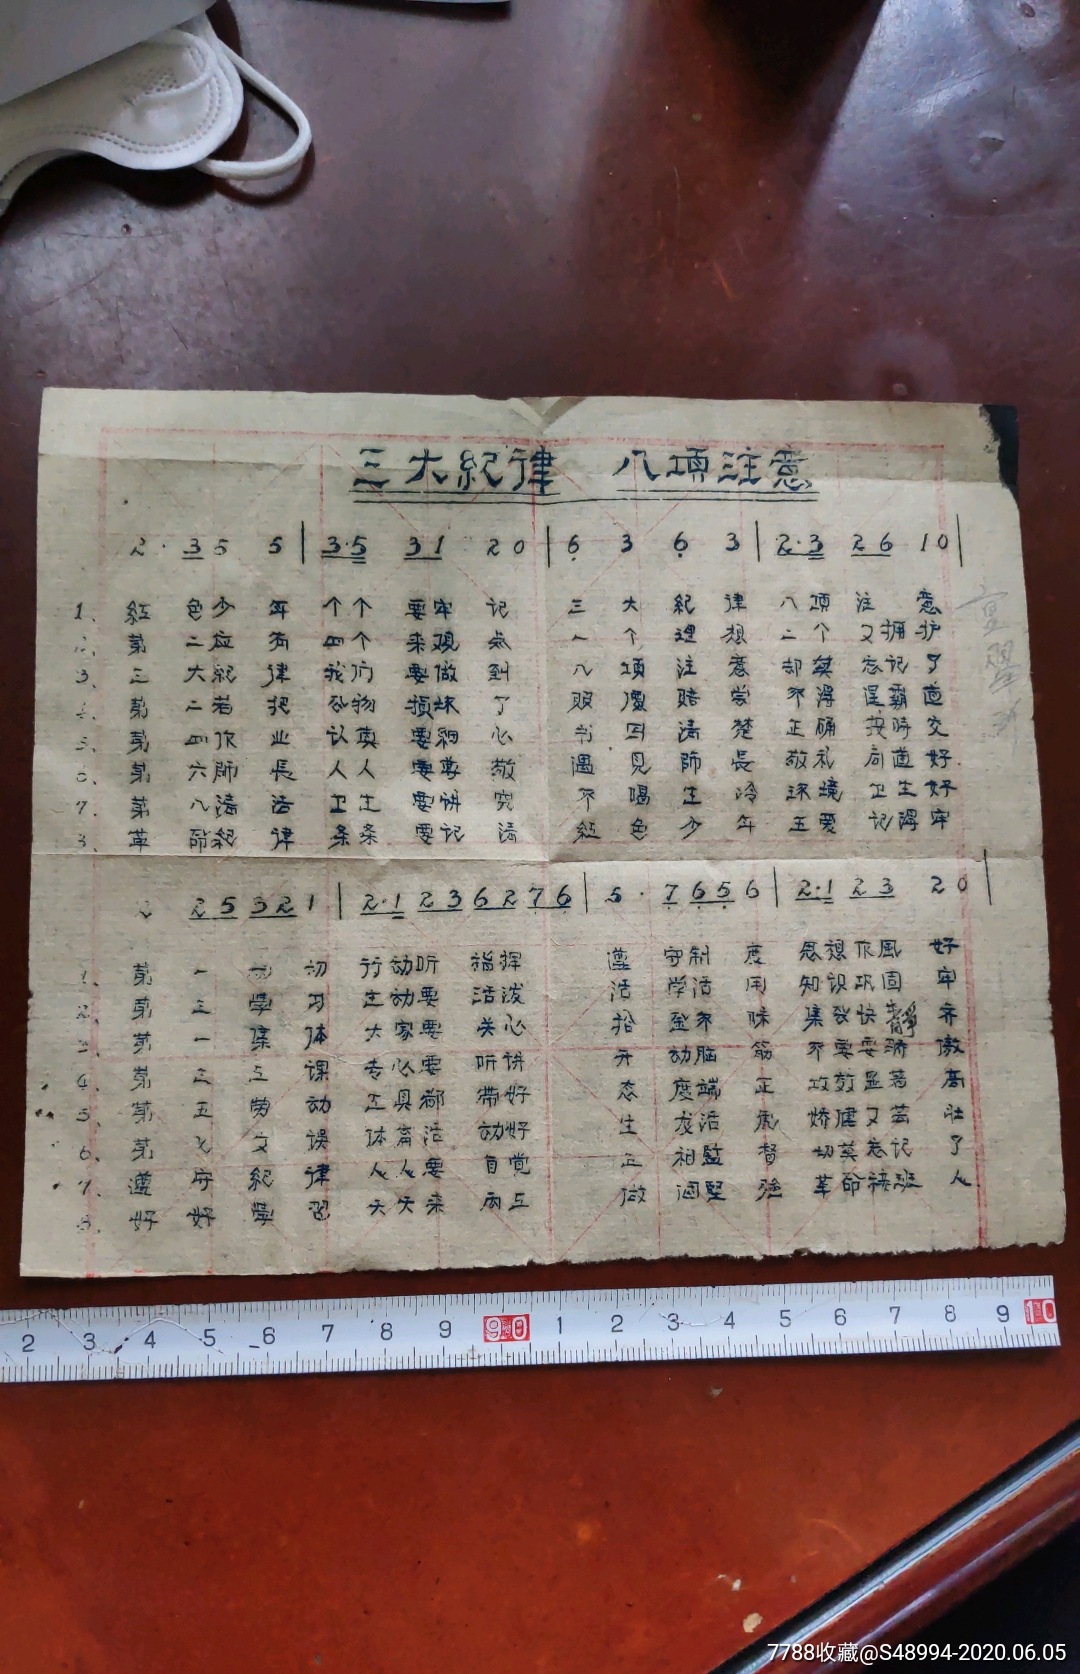 三大紀律 八項注意
2· 3 5 5 | 3·5 3 1 2 0 | 6 3 6 3 | 2·3 2 6 1 0 |
1、紅色少年个个要牢記 三大紀律八項注意
2、第二应有四个来观点 一个理想二个又拥护
3、三大紀律我们要做到 八項注意却莫忘记了
4、第二若把公物损坏了 照價賠尝不得逞霸道
5、第四作业认真要細心 书写清楚正确按時交
6、第六師長人人要尊敬 遇見師長敬礼问道好
7、第八清洁卫生要讲究 不喝生冷环境卫生好
8、革命紀律条条要记清 紅色少年五爱记得牢
2 2 5 3 2 1 | 2·1 2 3 6 2 7 6 | 5· 7 6 5 6 | 2·1 2 3 2 0 |
1、第一 切行动听指挥 遵守制度思想作風好
2、第三學习主动要活泼 活学活用知识巩固牢
3、第一集体大家要关心 拾金不昧集合快靜齐
4、第三上课专心要听讲 开动脑筋不要要骄傲
5、第五劳动工具都带好 态度端正效显著高
6、第七文误体育活动好 生龙活虎娇健又 壮
7、遵守紀律人人要自觉 互相監督切莫忘记了
8、好好學習天天来 互 做 坚強革命接班人
2 3 4 5 6 7 8 9 90 1 2 3 4 5 6 7 8 9 10
7788收藏@S48994-2020.06.05